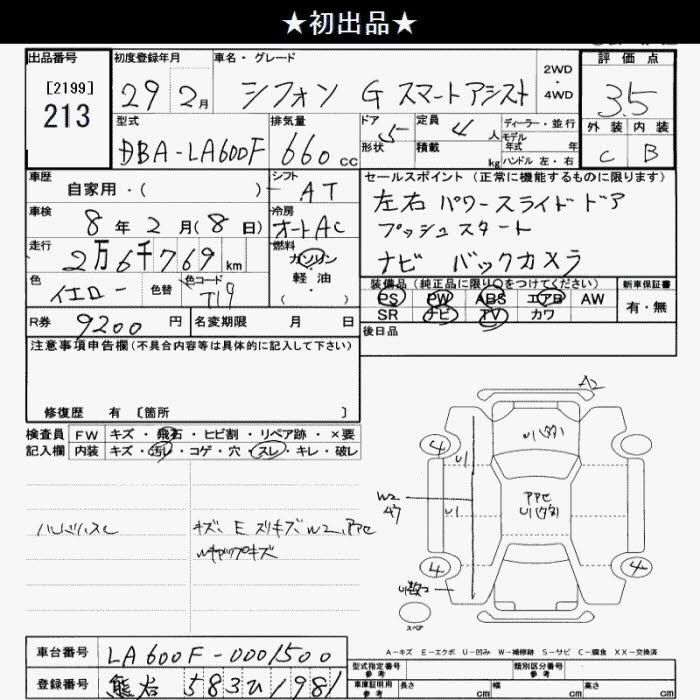 ★初出品★
出品番号
[2199]
213
初度登録年月
29年2月
車名・グレード
シフォン G スマートアシスト
2WD
・
4WD
評価点
3.5
外装 内装
C B
型式
DBA-LA600F
排気量
660 cc
ドア 5
形状
定員 4 人
積載 kg
ディーラー・並行
モデル
年式 年
ハンドル 左・右
車歴
自家用・( )
シフト
AT
セールスポイント (正常に機能するものに限ります)
左右 パワースライドドア
プッシュスタート
ナビ バックカメラ
車検
8年2月(8日)
冷房
オートAC
走行
2万6千769km
燃料
ガソリン
軽・油
・( )
色
イエロー
色替
色コード
T19
装備品 (純正品に限り○をつけてください)
PS PW ABS エアB AW
SR ナビ TV カワ
新車保証書
有・無
R券 9200円
名変期限 月 日
後日品
注意事項申告欄(不具合内容等は具体的に記入して下さい)
修復歴 有 〔箇所 〕
検査員
記入欄
FW キズ・飛石・ヒビ割・リペア跡・×要
内装 キズ・汚レ・コゲ・穴・スレ・キレ・破レ
キズ、E スリキズ W2
A2
4
4
4
U1
U1
W2
スペア
A-キズ E-エクボ U-凹み W-補修跡 S-サビ C-腐食 XX-交換済
車台番号
LA600F-0001500
登録番号
583ひ1981
型式指定番号
参考
類別区分番号
参考
車庫証明用
参考
長さ cm
幅 cm
高さ cm